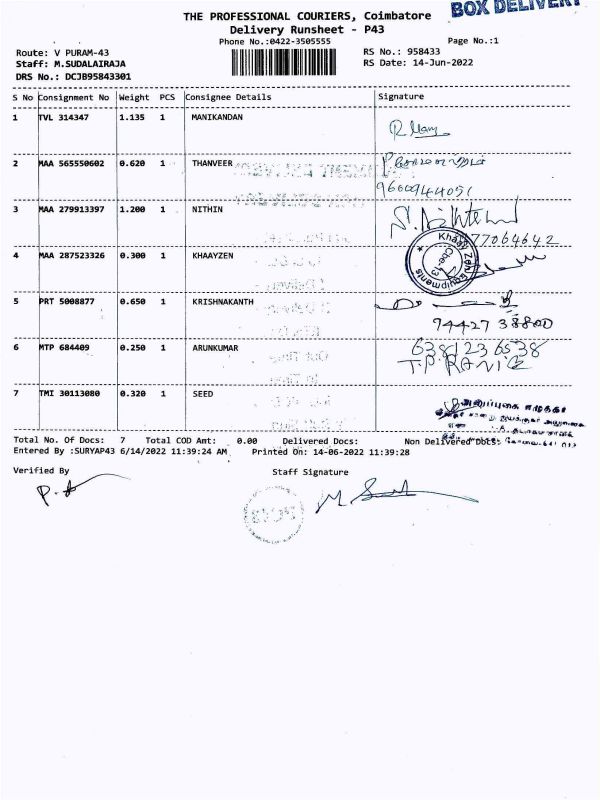 BOX DELIVERY
THE PROFESSIONAL COURIERS, Coimbatore
Delivery Runsheet - P43
Phone No.:0422-3505555
Page No.:1
Route: V PURAM-43
RS No.: 958433
Staff: M.SUDALAIRAJA
RS Date: 14-Jun-2022
DRS No.: DCJB95843301
S No Consignment No Weight PCS Consignee Details Signature
1 TVL 314347 1.135 1 MANIKANDAN
2 MAA 565550602 0.620 1 THANVEER
3 MAA 279913397 1.200 1 NITHIN
77064642
4 MAA 287523326 0.300 1 KHAAYZEN
Khaay Zen Equipments
Cbe-13
5 PRT 5008877 0.650 1 KRISHNAKANTH
94427 38800
6 MTP 684409 0.250 1 ARUNKUMAR
6381236538
7 TMI 30113080 0.320 1 SEED
Total No. Of Docs: 7 Total COD Amt: 0.00 Delivered Docs: Non Delivered Docs:
Entered By :SURYAP43 6/14/2022 11:39:24 AM Printed On: 14-06-2022 11:39:28
Verified By Staff Signature